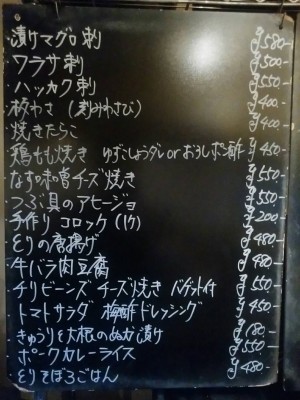 漬けマグロ刺 ¥580-
ワラサ刺 ¥500-
ハッカク刺 ¥550-
板わさ (刻みわさび) ¥400-
焼きたらこ ¥400-
鶏もも焼き ゆずこしょうダレ or おろしポン酢 ¥450-
なす味噌チーズ焼き ¥550-
つぶ貝のアヒージョ ¥550-
手作りコロッケ (1ケ) ¥200-
とりの唐揚げ ¥480-
牛バラ肉豆腐 ¥480-
チリビーンズチーズ焼き バゲット付 ¥550-
トマトサラダ 梅酢ドレッシング ¥450-
きゅうりと大根のぬか漬け ¥180-
ポークカレーライス ¥550-
とりそぼろごはん ¥480-